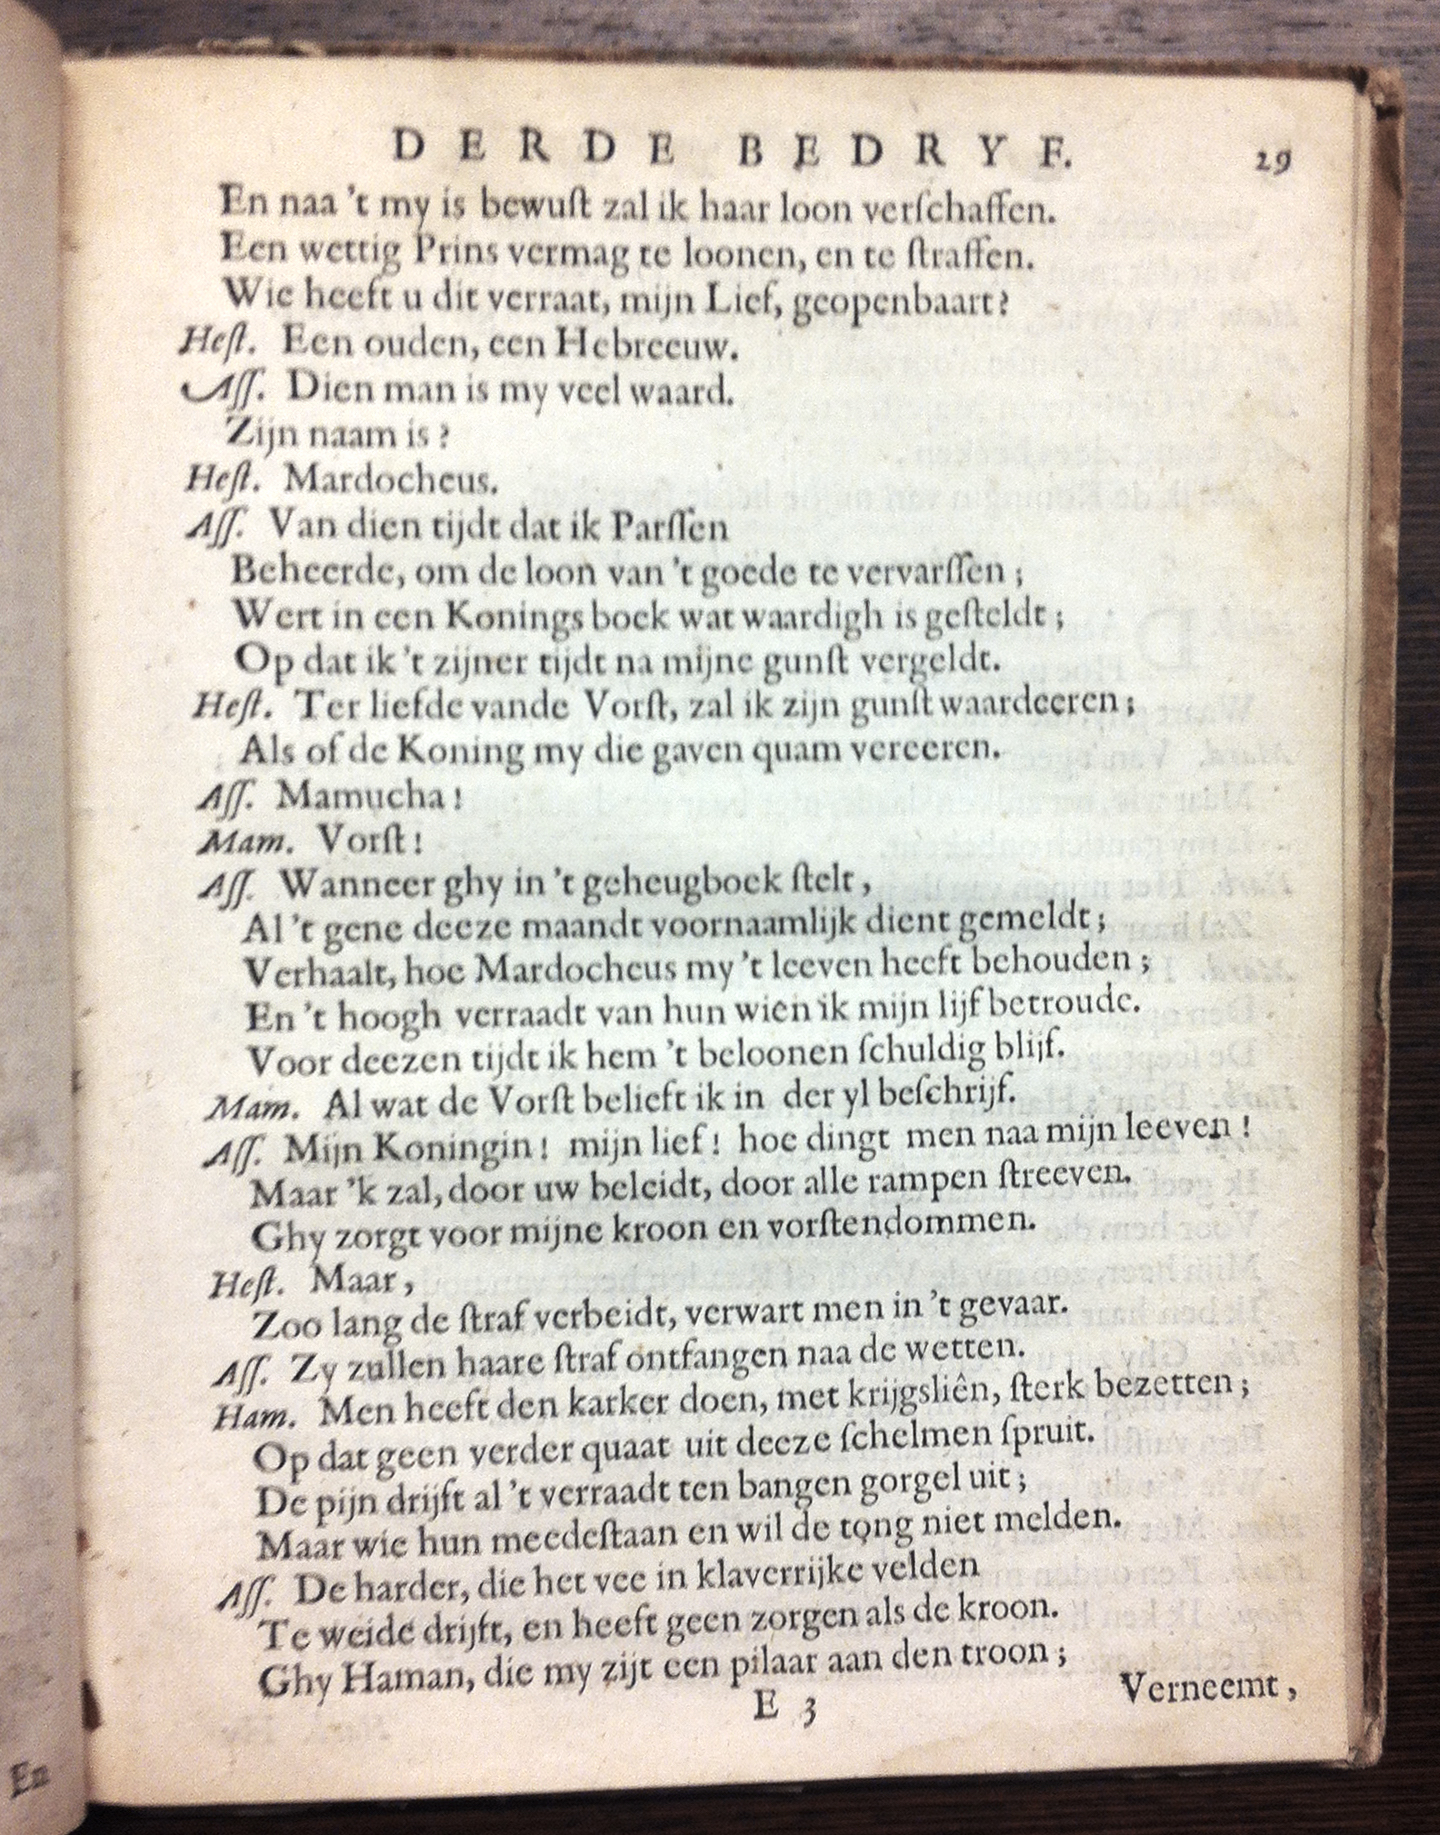 DERDE BEDRYF. 29
En naa 't my is bewuſt zal ik haar loon verſchaffen.
Een wettig Prins vermag te loonen, en te ſtraffen.
Wie heeft u dit verraat, mijn Lief, geopenbaart?
Heſt. Een ouden, een Hebreeuw.
Aſſ. Dien man is my veel waard.
Zijn naam is?
Heſt. Mardocheus.
Aſſ. Van dien tijdt dat ik Parſſen
Beheerde, om de loon van 't goede te vervarſſen;
Wert in een Konings boek wat waardigh is geſteldt;
Op dat ik 't zijner tijdt na mijne gunſt vergeldt.
Heſt. Ter liefde vande Vorſt, zal ik zijn gunſt waardeeren;
Als of de Koning my die gaven quam vereeren.
Aſſ. Mamucha!
Mam. Vorſt!
Aſſ. Wanneer ghy in 't geheugboek ſtelt,
Al 't gene deeze maandt voornaamlijk dient gemeldt;
Verhaalt, hoe Mardocheus my 't leeven heeft behouden;
En 't hoogh verraadt van hun wien ik mijn lijf betroude.
Voor deezen tijdt ik hem 't beloonen ſchuldig blijf.
Mam. Al wat de Vorſt belieft ik in der yl beſchrijf.
Aſſ. Mijn Koningin! mijn lief! hoe dingt men naa mijn leeven!
Maar 'k zal, door uw beleidt, door alle rampen ſtreeven.
Ghy zorgt voor mijne kroon en vorſtendommen.
Heſt. Maar,
Zoo lang de ſtraf verbeidt, verwart men in 't gevaar.
Aſſ. Zy zullen haare ſtraf ontfangen naa de wetten.
Ham. Men heeft den karker doen, met krijgsliên, ſterk bezetten;
Op dat geen verder quaat uit deeze ſchelmen ſpruit.
De pijn drijft al 't verraadt ten bangen gorgel uit;
Maar wie hun meedeſtaan en wil de tong niet melden.
Aſſ. De harder, die het vee in klaverrijke velden
Te weide drijft, en heeft geen zorgen als de kroon.
Ghy Haman, die my zijt een pilaar aan den troon;
E 3 Verneemt,
En